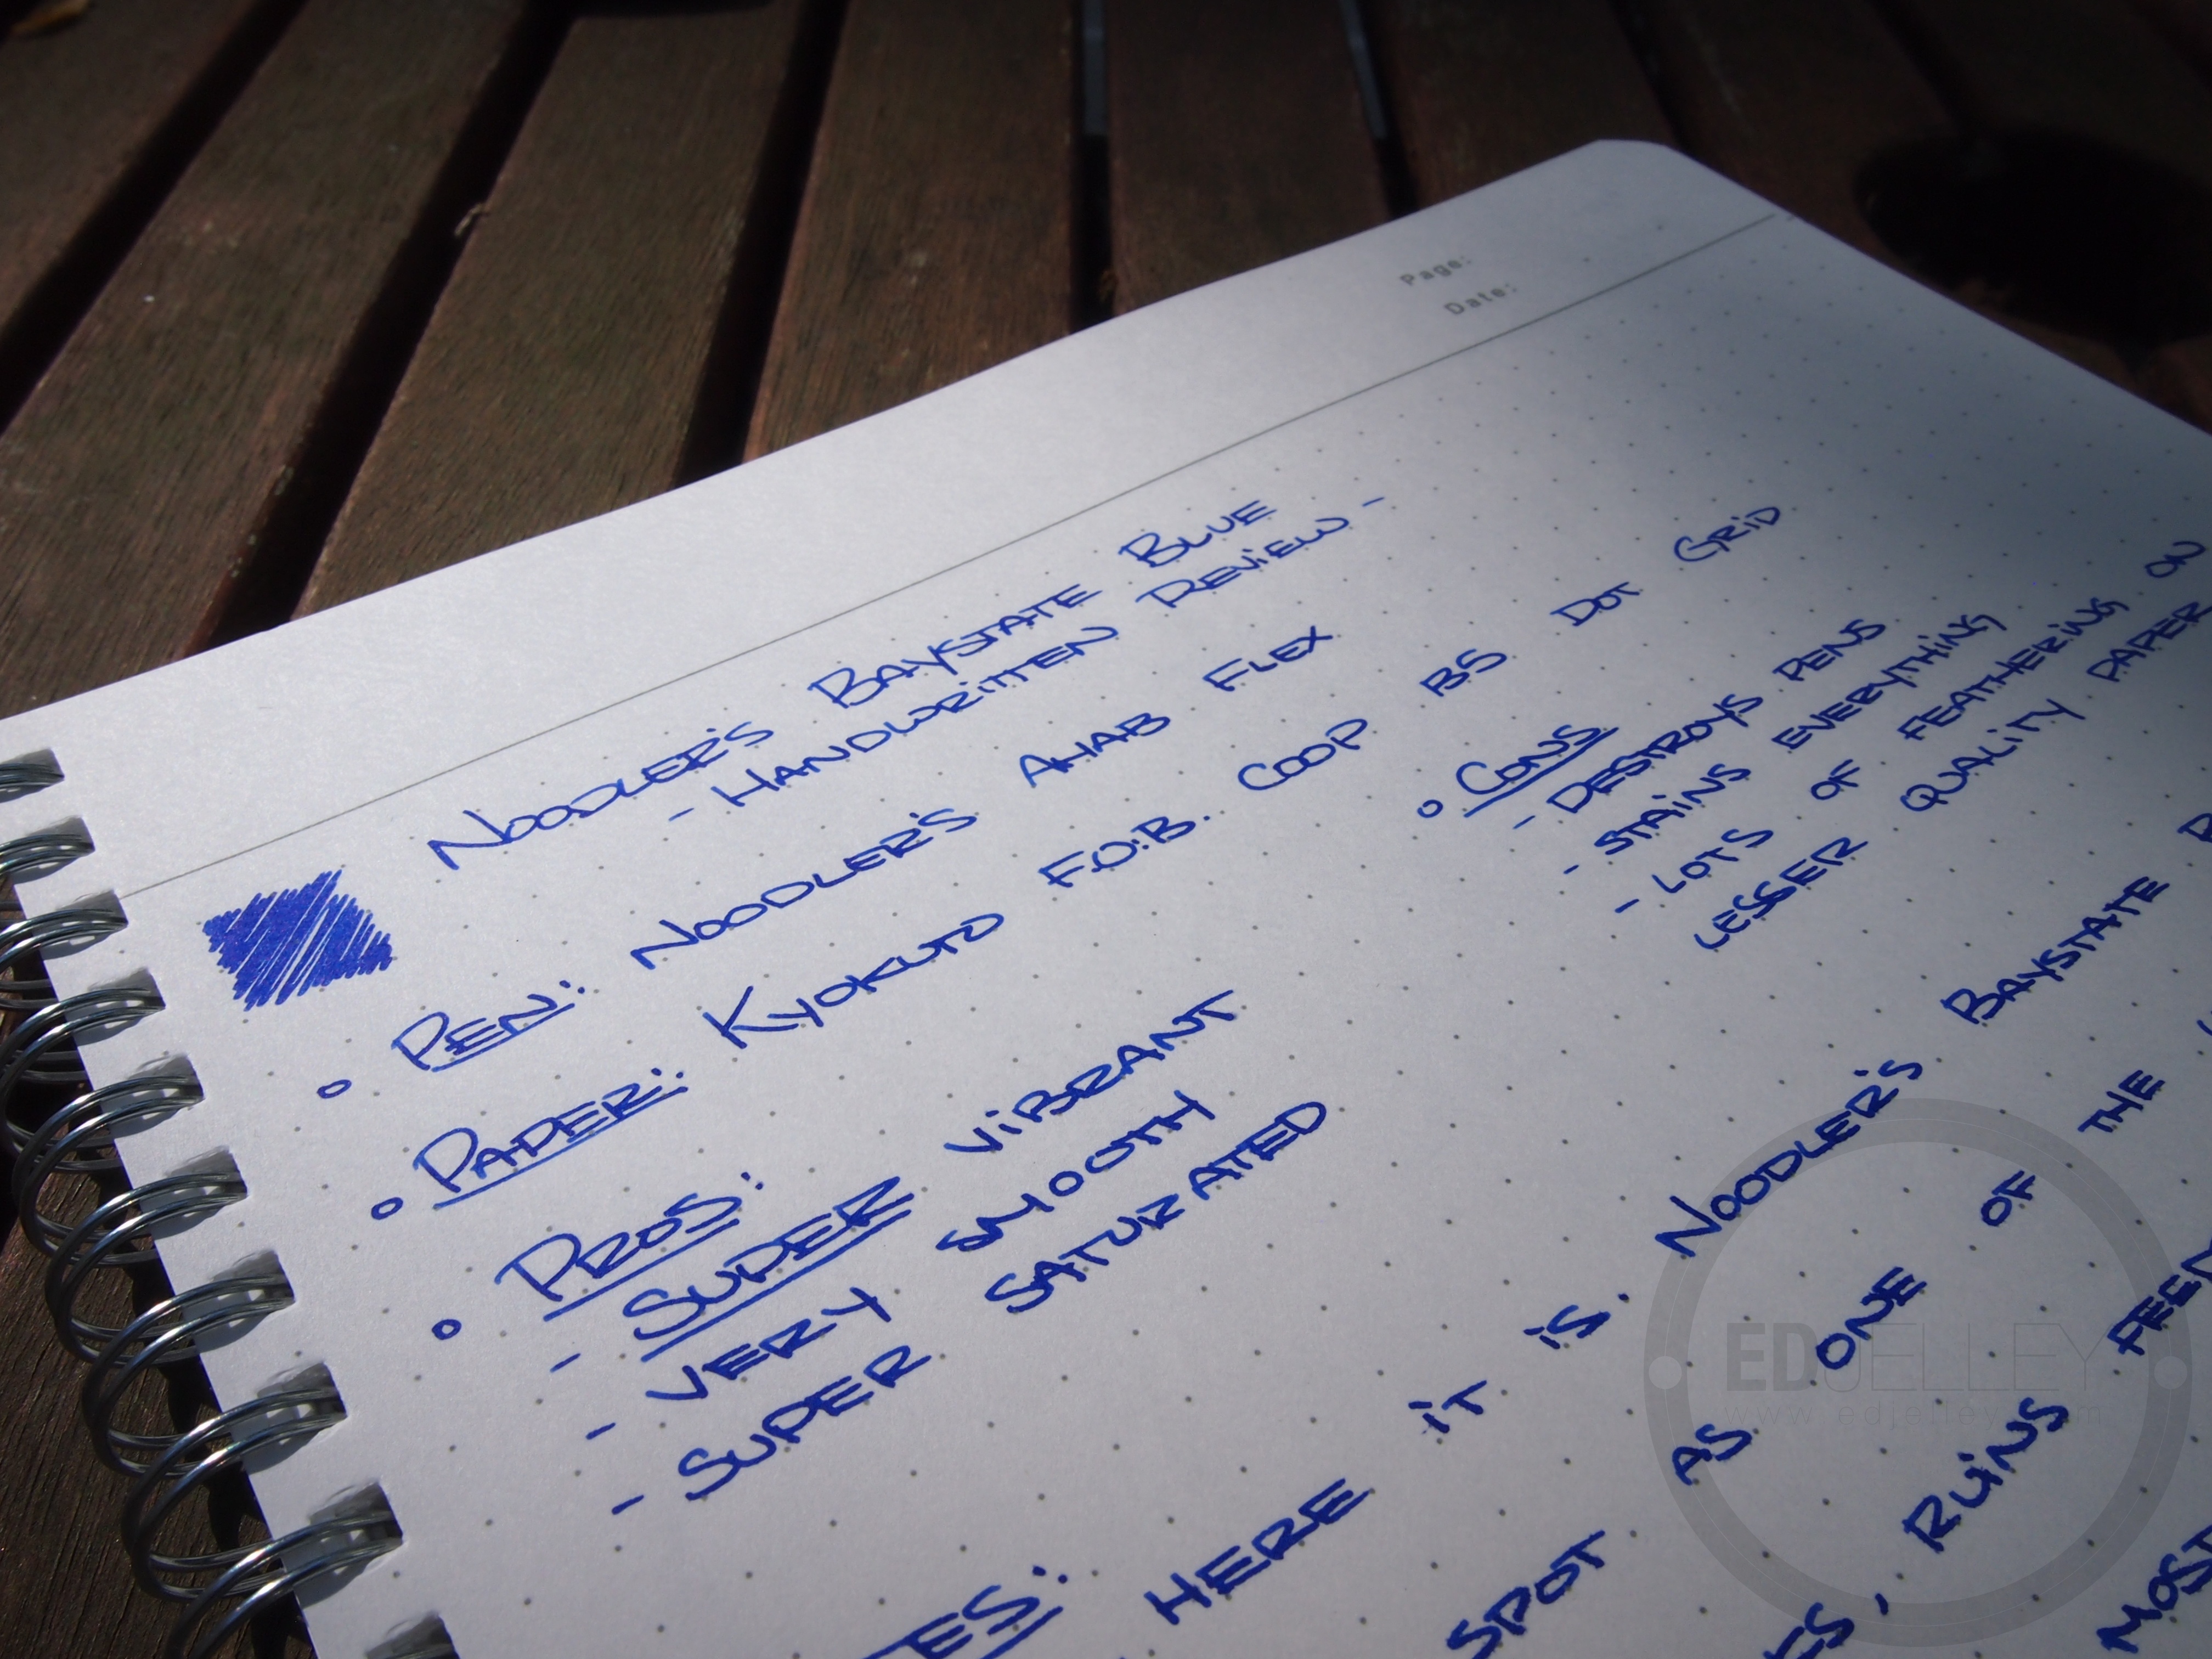 Page:
Date:
NOODLER'S BAYSTATE BLUE
- HANDWRITTEN REVIEW -
° PEN: NOODLER'S AHAB FLEX
° PAPER: KYOKUTO F.O.B. COOP B5 DOT GRID
° PROS:
- SUPER VIBRANT
- VERY SMOOTH
- SUPER SATURATED
° CONS
- DESTROYS PENS
- STAINS EVERYTHING
- LOTS OF FEATHERING ON
LESSER QUALITY PAPER
HERE IT IS. NOODLER'S BAYSTATE
SPOT AS ONE OF THE
RUINS
MOST
EDJELLEY